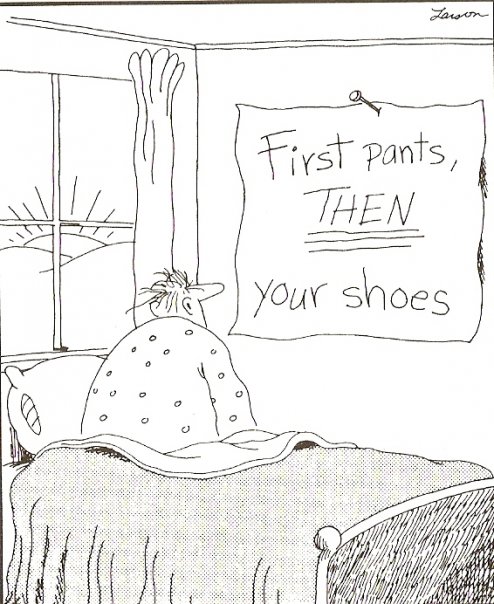 Larson
First pants,
THEN
your shoes